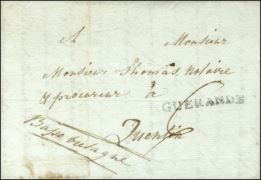 A Monsieur
Monsieur Thomas, Notaire
& procureur à
GUERANDE
Basse bretagne